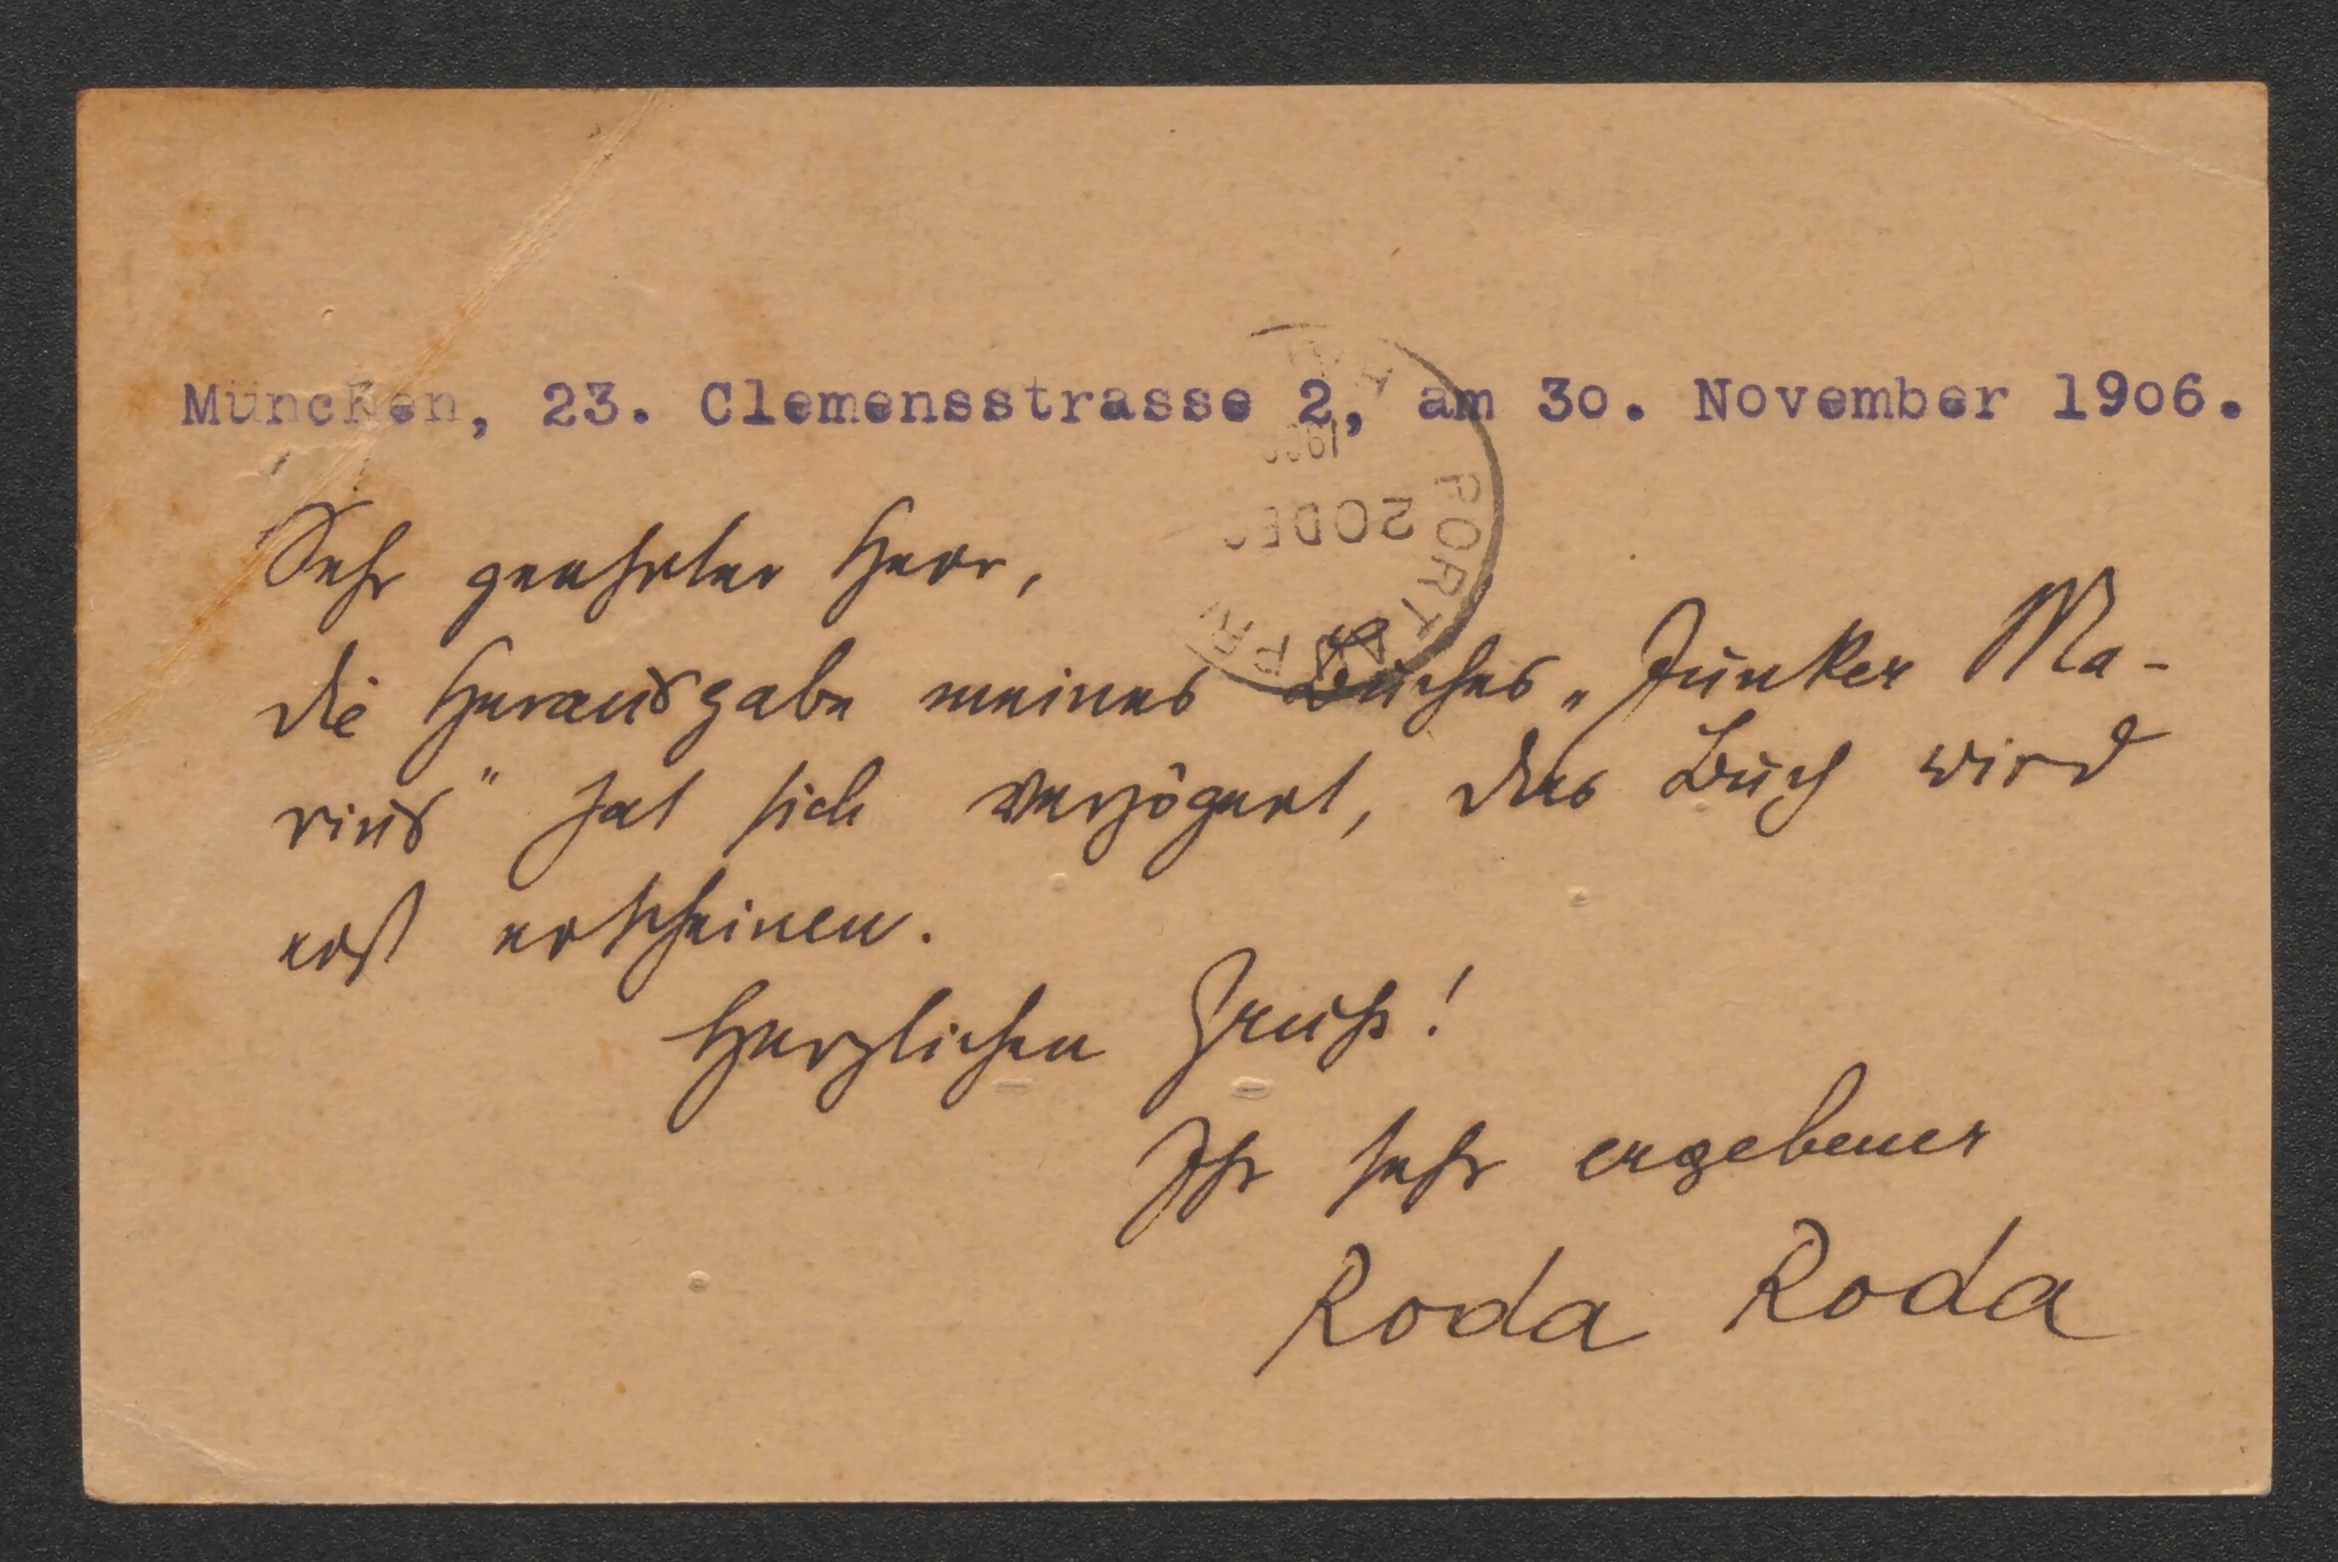 München, 23. Clemensstrasse 2, am 30. November 1906.
PORT
20DEC
Sehr geehrter Herr,
die Herausgabe meines Buches „Junker Ma-
rius" hat sich verzögert, das Buch wird
erst erscheinen.
Herzlichen Gruß!
Ihr sehr ergebener
Roda Roda